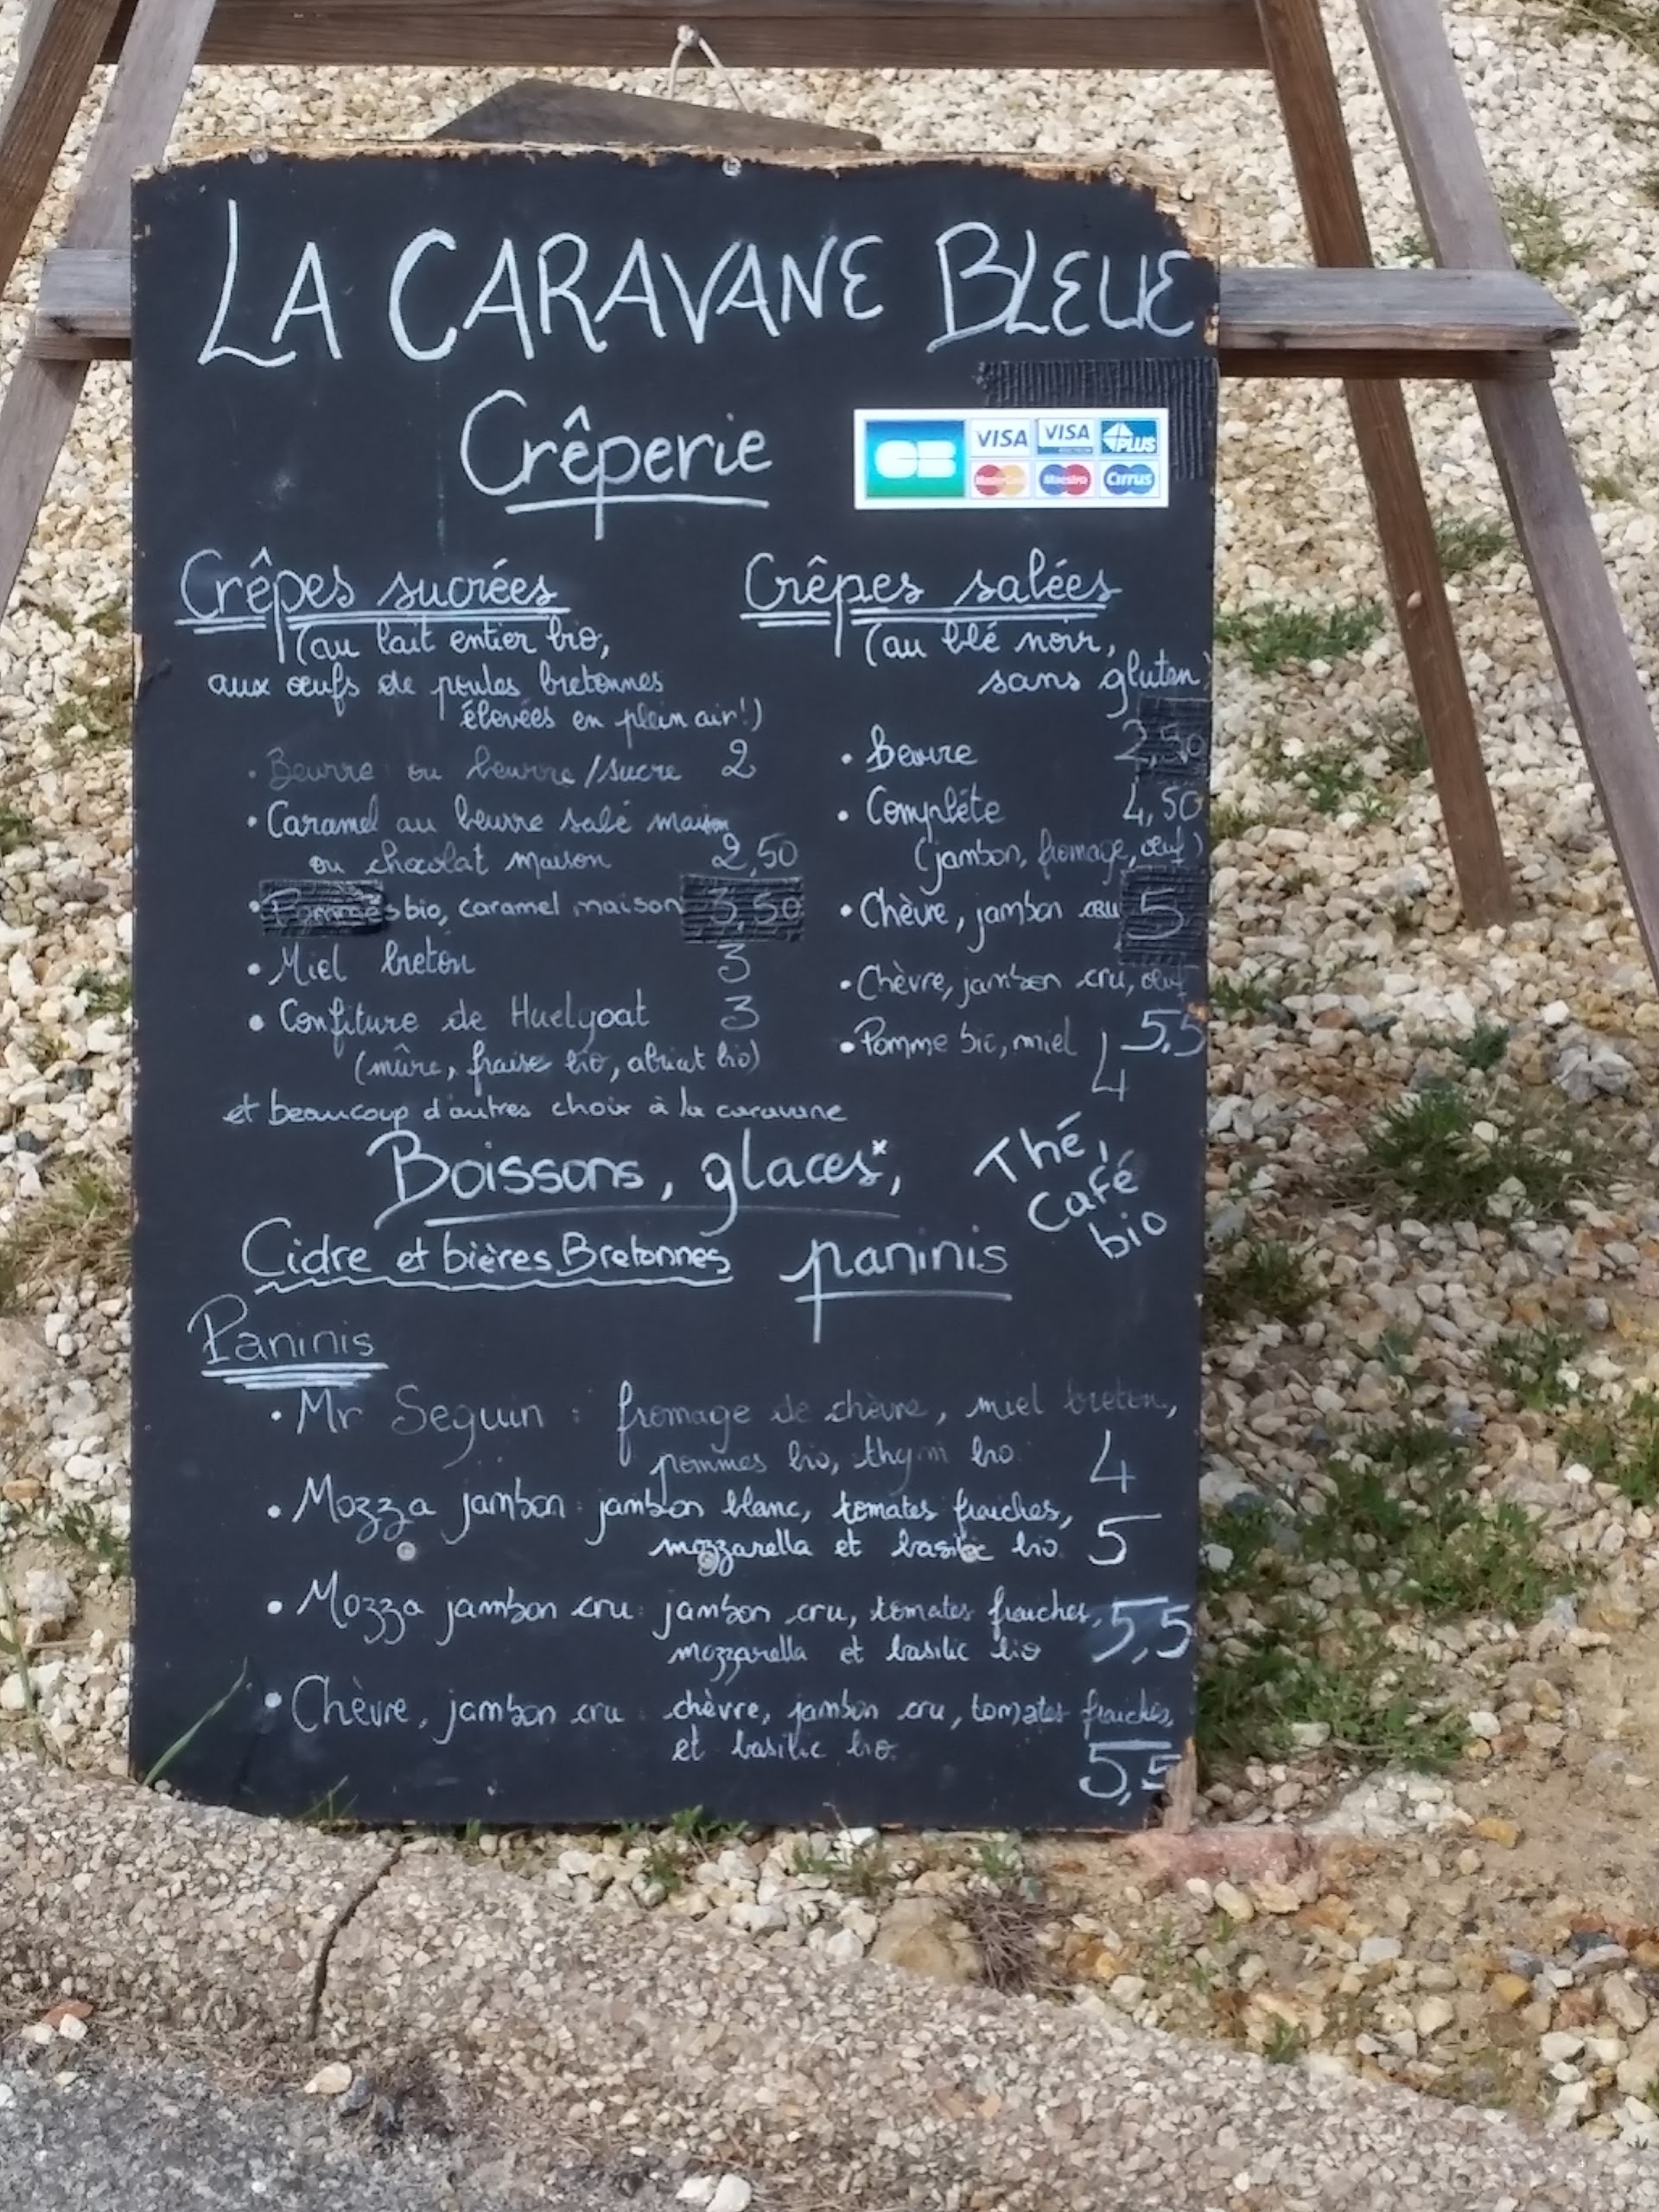 LA CARAVANE BLEUE
Crêperie
CB VISA VISA PLUS
MasterCard Maestro Cirrus
Crêpes sucrées
(au lait entier bio,
aux œufs de poules bretonnes
élevées en plein air!)
• Beurre ou beurre/sucre 2
• Caramel au beurre salé maison
ou chocolat maison 2,50
• Pommes bio, caramel maison 3,50
• Miel breton 3
• Confiture de Huelgoat 3
(mûre, fraise bio, abricot bio)
et beaucoup d'autres choix à la caravane
Crêpes salées
(au blé noir,
sans gluten)
• Beurre 2,50
• Complète 4,50
(jambon, fromage, œuf)
• Chèvre, jambon cru 5
• Chèvre, jambon cru, œuf
5,5
• Pomme bio, miel
4
Boissons, glaces*,
Thé,
Café
bio
Cidre et bières Bretonnes paninis
Paninis
• Mr Seguin : fromage de chèvre, miel breton,
pommes bio, thym bio. 4
• Mozza jambon : jambon blanc, tomates fraiches,
mozzarella et basilic bio. 5
• Mozza jambon cru : jambon cru, tomates fraiches,
mozzarella et basilic bio 5,5
• Chèvre, jambon cru : chèvre, jambon cru, tomates fraiches,
et basilic bio.
5,5